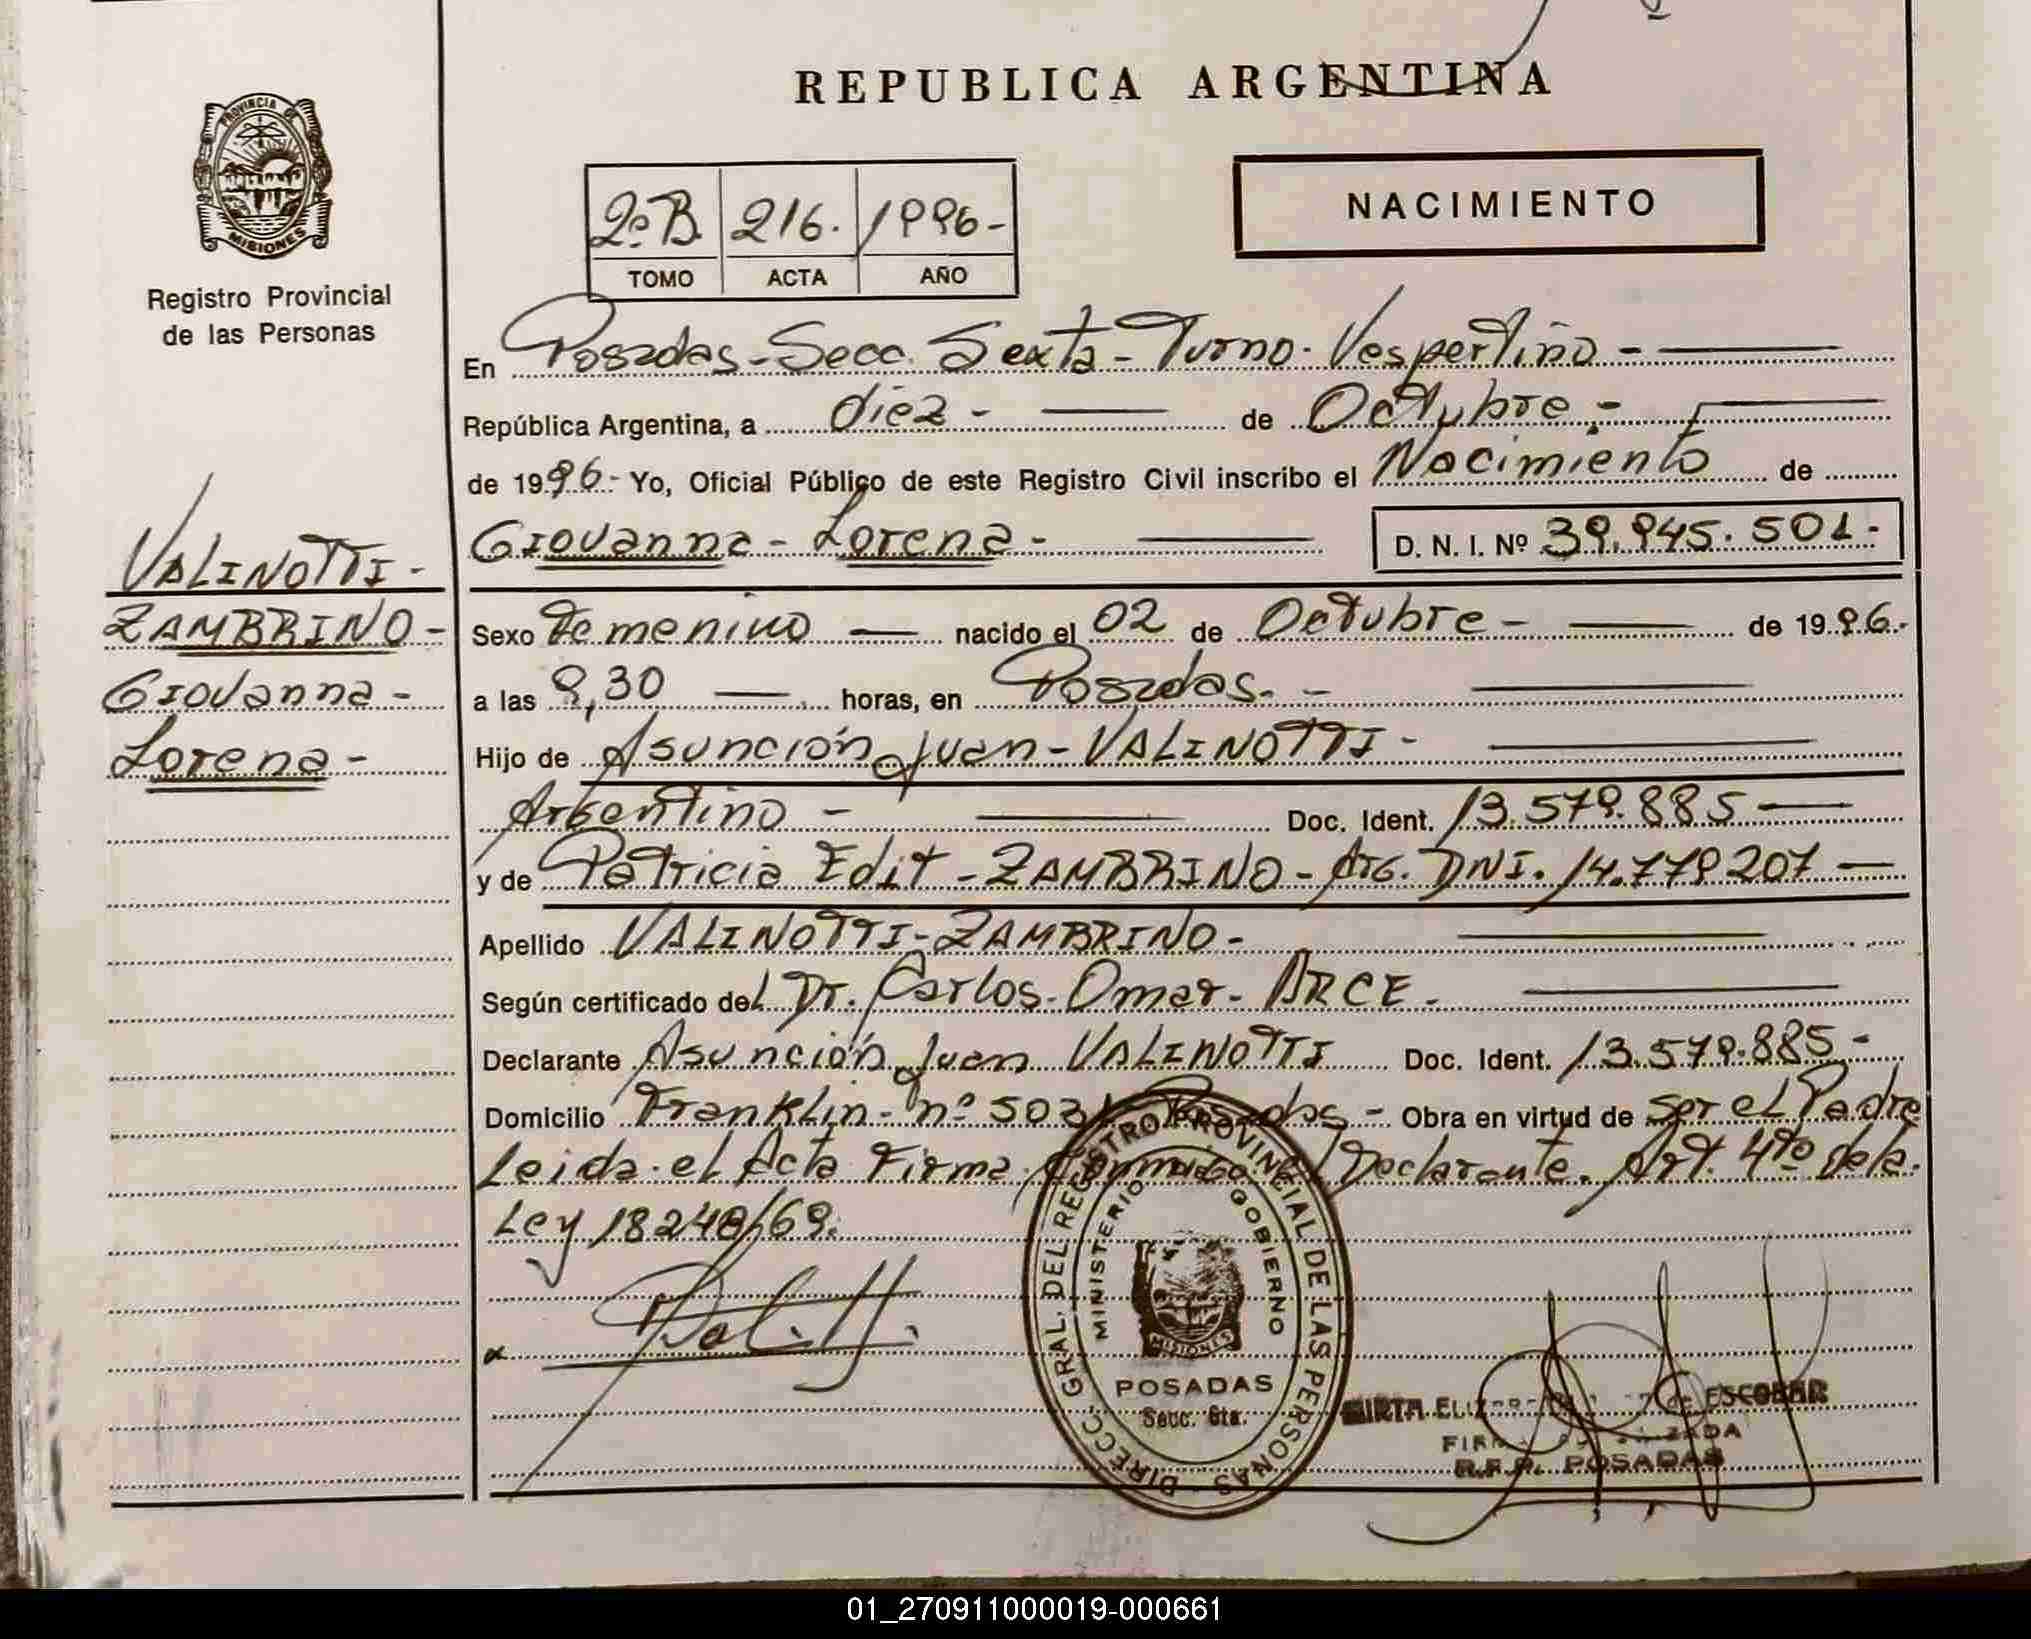 REPUBLICA ARGENTINA
PROVINCIA DE
MISIONES
Registro Provincial
de las Personas
2º B. 216. 1996-
TOMO ACTA AÑO
NACIMIENTO
En Posadas - Secc. Sexta - Turno - Vespertino -
República Argentina, a diez - de Octubre -
de 1996 - Yo, Oficial Público de este Registro Civil inscribo el Nacimiento de
Giovanna - Lorena - D. N. I. Nº 39.945.501 -
VALINOTTI -
ZAMBRINO -
Giovanna -
Lorena -
Sexo Femenino nacido el 02 de Octubre - de 1996.-
a las 9,30 horas, en Posadas. -
Hijo de Asunción Juan - VALINOTTI -
Argentino - Doc. Ident. 13.579.885
y de Patricia Edit - ZAMBRINO - Arg. DNI. 14.779.207
Apellido VALINOTTI - ZAMBRINO -
Según certificado del Dr. Carlos - Omar - ARCE -
Declarante Asunción Juan VALINOTTI Doc. Ident. 13.579.885 -
Domicilio Franklin - nº 5031 Posadas - Obra en virtud de ser el Padre
Leida el Acta Firma Conmigo el Declarante. Art. 4to de la
Ley 18248/69.
DIRECC. GRAL. DEL REGISTRO PROVINCIAL DE LAS PERSONAS
MINISTERIO GOBIERNO
MISIONES
POSADAS
Secc. 6ta.
MIRTA ESCOBAR
R.P.P. POSADAS
01_270911000019-000661